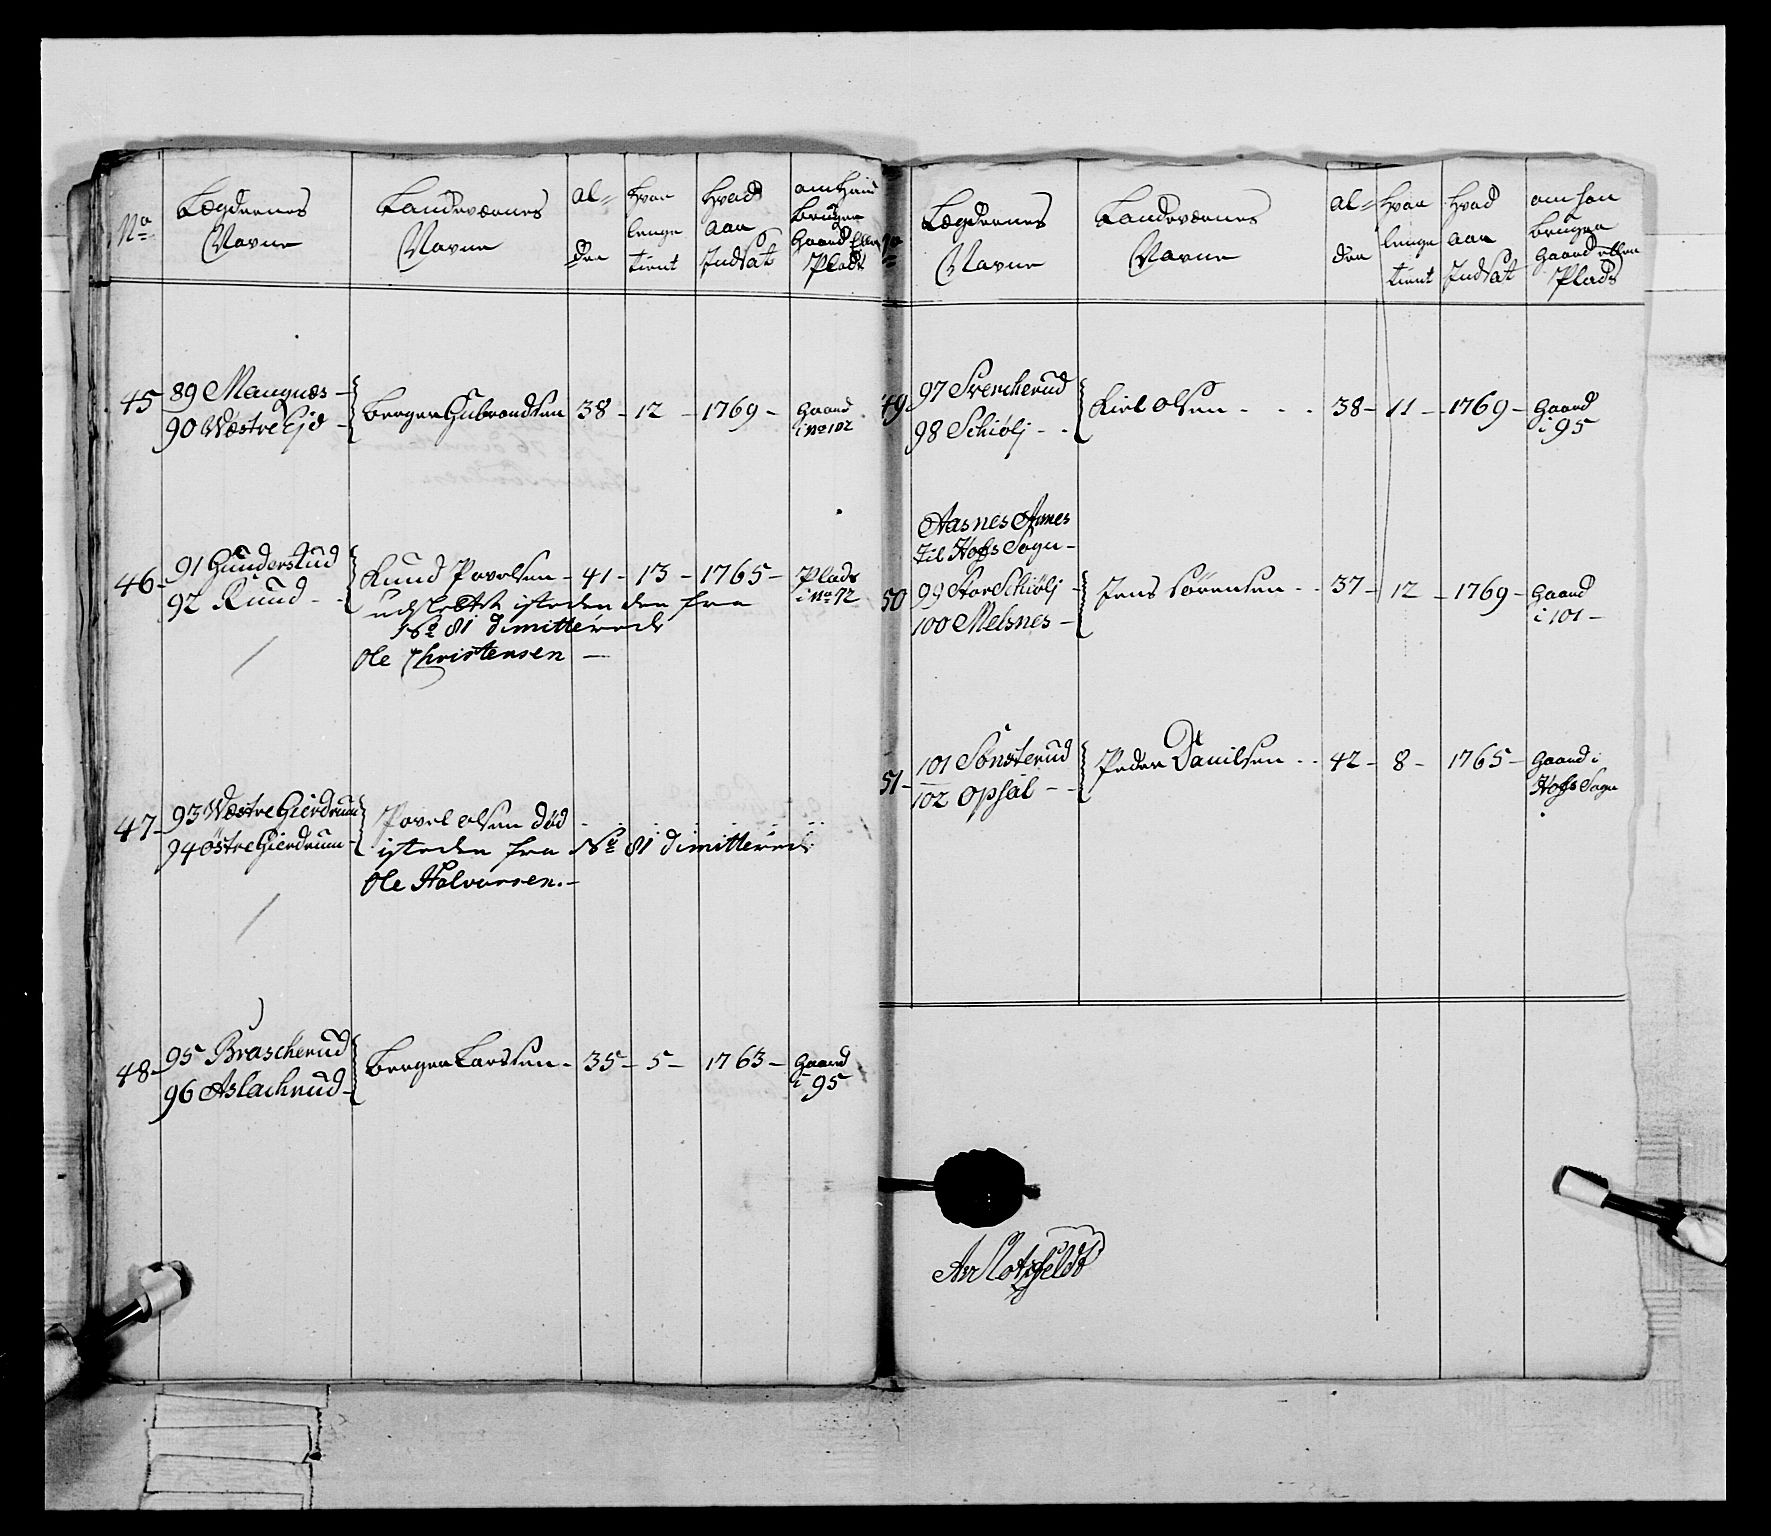 No
Lægdernes
Navne
Landeværnes
Navne
al-
der
Hvor
lenge
tient
Hvad
aar
Indsat
om Hand
bruger
Gaard Eller
Plads
45
89 Mangnæs -
90 Wæstre Ejd -
Berger Gubrandsen
38 - 12 - 1769 -
Gaard
i No 102
46 -
91 Gunderstud
92 Ruud - -
Knud Povelsen - 41 - 13 - 1765 -
Plads
i No 72
udsledt isteden den fra
No 81 dimitterede
Ole Christensen -
47 -
93 Wæstre Gierdrum
94 Østre Gierdrum -
Povel Olsen død
isteden fra No 81 dimitterede
Ole Halvorsen. -
48 -
95 Brascherud
96 Aslachrud -
Berger Larssen -
35 - 5 - 1763 -
Gaard
i 95
No
Lægdernes
Navne
Landeværnes
Navne
al-
der
Hvor
lenge
tient
Hvad
aar
Indsat
om han
bruger
Gaard eller
Plads
49
97 Svercherud
98 Schiølj - -
Kiel Olsen - - -
38 - 11 - 1769 -
Gaard
i 95
Aasnes Annes
til Hofs Sogn -
50
99 Stor Schiølj -
100 Melsnes -
Jens Sørensen - -
37 - 12 - 1769 -
Gaard
i 101 -
51 -
101 Sønsterud
102 Opsal - -
Peder Danilsen - -
42 - 8 - 1765 -
Gaard i
Hofs Sogn